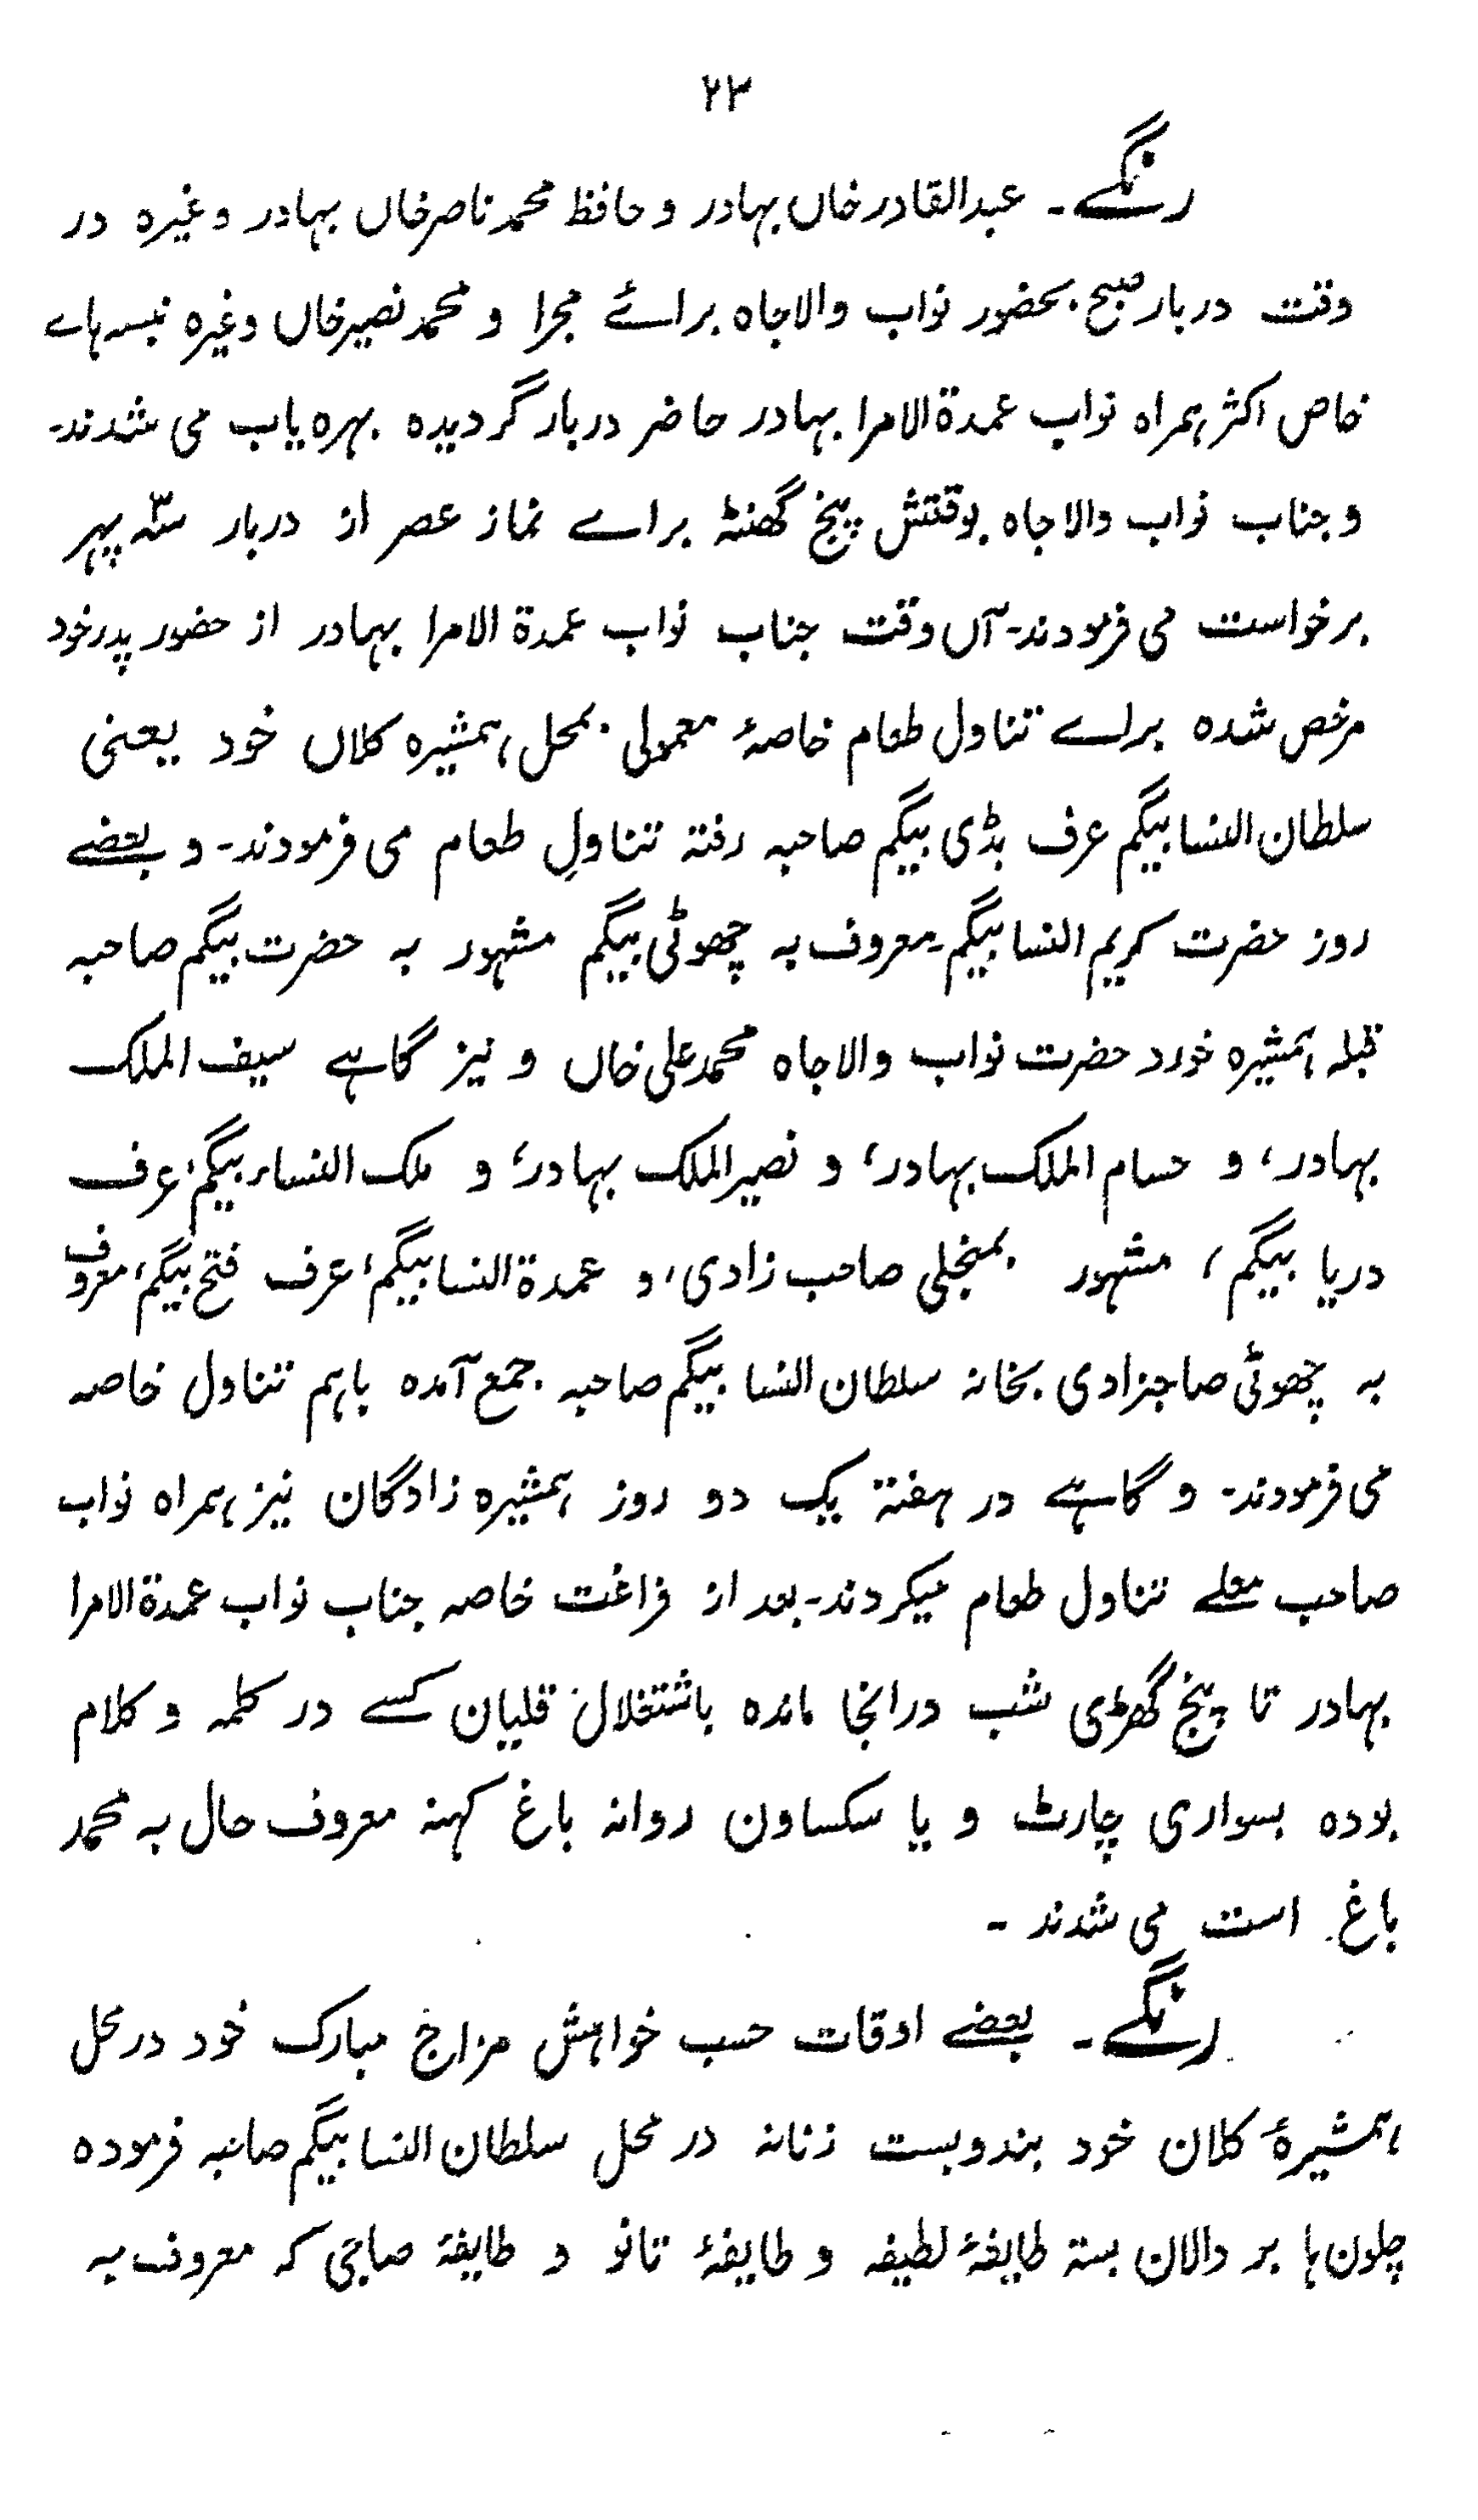 ۲۳
رنگے۔ عبدالقادر خاں بہادر و حافظ محمد ناصر خاں بہادر وغیرہ در
وقت دربار صبح بحضور نواب والاجاہ برائے مجرا و محمد نصیر خاں وغیرہ نبسہاے
خاص اکثر ہمراہ نواب عمدۃ الامرا بہادر حاضر دربار گردیدہ بہرہ یاب می شدند۔
و جناب نواب والاجاہ بوقتش پنج گھنٹہ براے نماز عصر از دربار سہ پہر
برخواست می فرمودند۔ آں وقت جناب نواب عمدۃ الامرا بہادر از حضور پدر خود
مرخص شدہ براے تناول طعام خاصۂ معمولی بمحل ہمشیرہ کلاں خود یعنی
سلطان النسا بیگم عرف بڈی بیگم صاحبہ رفتہ تناولِ طعام می فرمودند۔ و بعضے
روز حضرت کریم النسا بیگم۔ معروف بہ چھوٹی بیگم مشہور بہ حضرت بیگم صاحبہ
قبلہ ہمشیرہ خورد حضرت نواب والاجاہ محمد علی خاں و نیز گاہے سیف الملک
بہادر، و حسام الملک بہادر، و نصیر الملک بہادر، و ملک النساء بیگم، عرف
دریا بیگم، مشہور بمنجلی صاحب زادی، و عمدۃ النسا بیگم، عرف فتح بیگم، معروف
بہ چھوٹی صاحبزادی بخانہ سلطان النسا بیگم صاحبہ جمع آمدہ باہم تناول خاصہ
می فرمودند۔ و گاہے در ہفتہ یک دو روز ہمشیرہ زادگان نیز ہمراہ نواب
صاحب معلے تناول طعام میکردند۔ بعد از فراغت خاصہ جناب نواب عمدۃ الامرا
بہادر تا پنج گھڑی شب درانجا ماندہ باشتغلال قلیان کسے در کلمہ و کلام
بودہ بسواری چارٹ و یا سکساون روانہ باغ کہنہ معروف حال بہ محمد
باغ است می شدند۔
رنگے۔ بعضے اوقات حسب خواہش مزاج مبارک خود در محل
ہمشیرۂ کلان خود بندوبست زنانہ در محل سلطان النسا بیگم صاحبہ فرمودہ
چلون ہا بر دالان بستہ طایفۂ لطیفہ و طایفۂ تانو و طایفۂ صباحی کہ معروف بہ